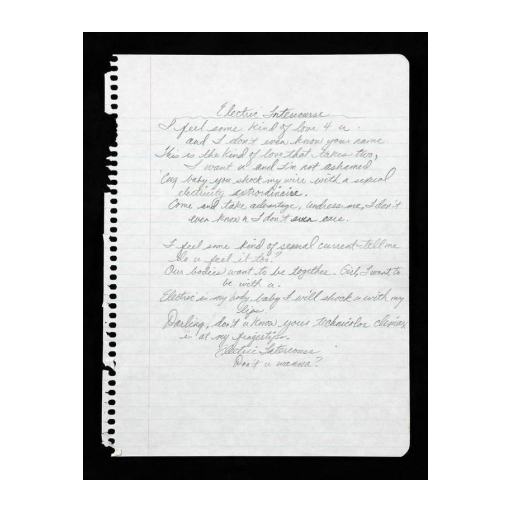 Electric Intercourse
I feel some kind of love 4 u.
and I don't even know your name
This is the kind of love that takes two,
I want u and I'm not ashamed
Cuz baby you shock my wire with a sexual
electricity extrordinaire.
Come and take advantage, undress me, I don't
even know n I don't even care.
I feel some kind of sexual current - tell me
do u feel it too?
Our bodies want to be together. Girl, I want to
be with u.
Electric is my body baby I will shock u with my
lips
Darling, don't u know your technicolor climax
is at my fingertips.
Electric Intercourse
Don't u wanna?